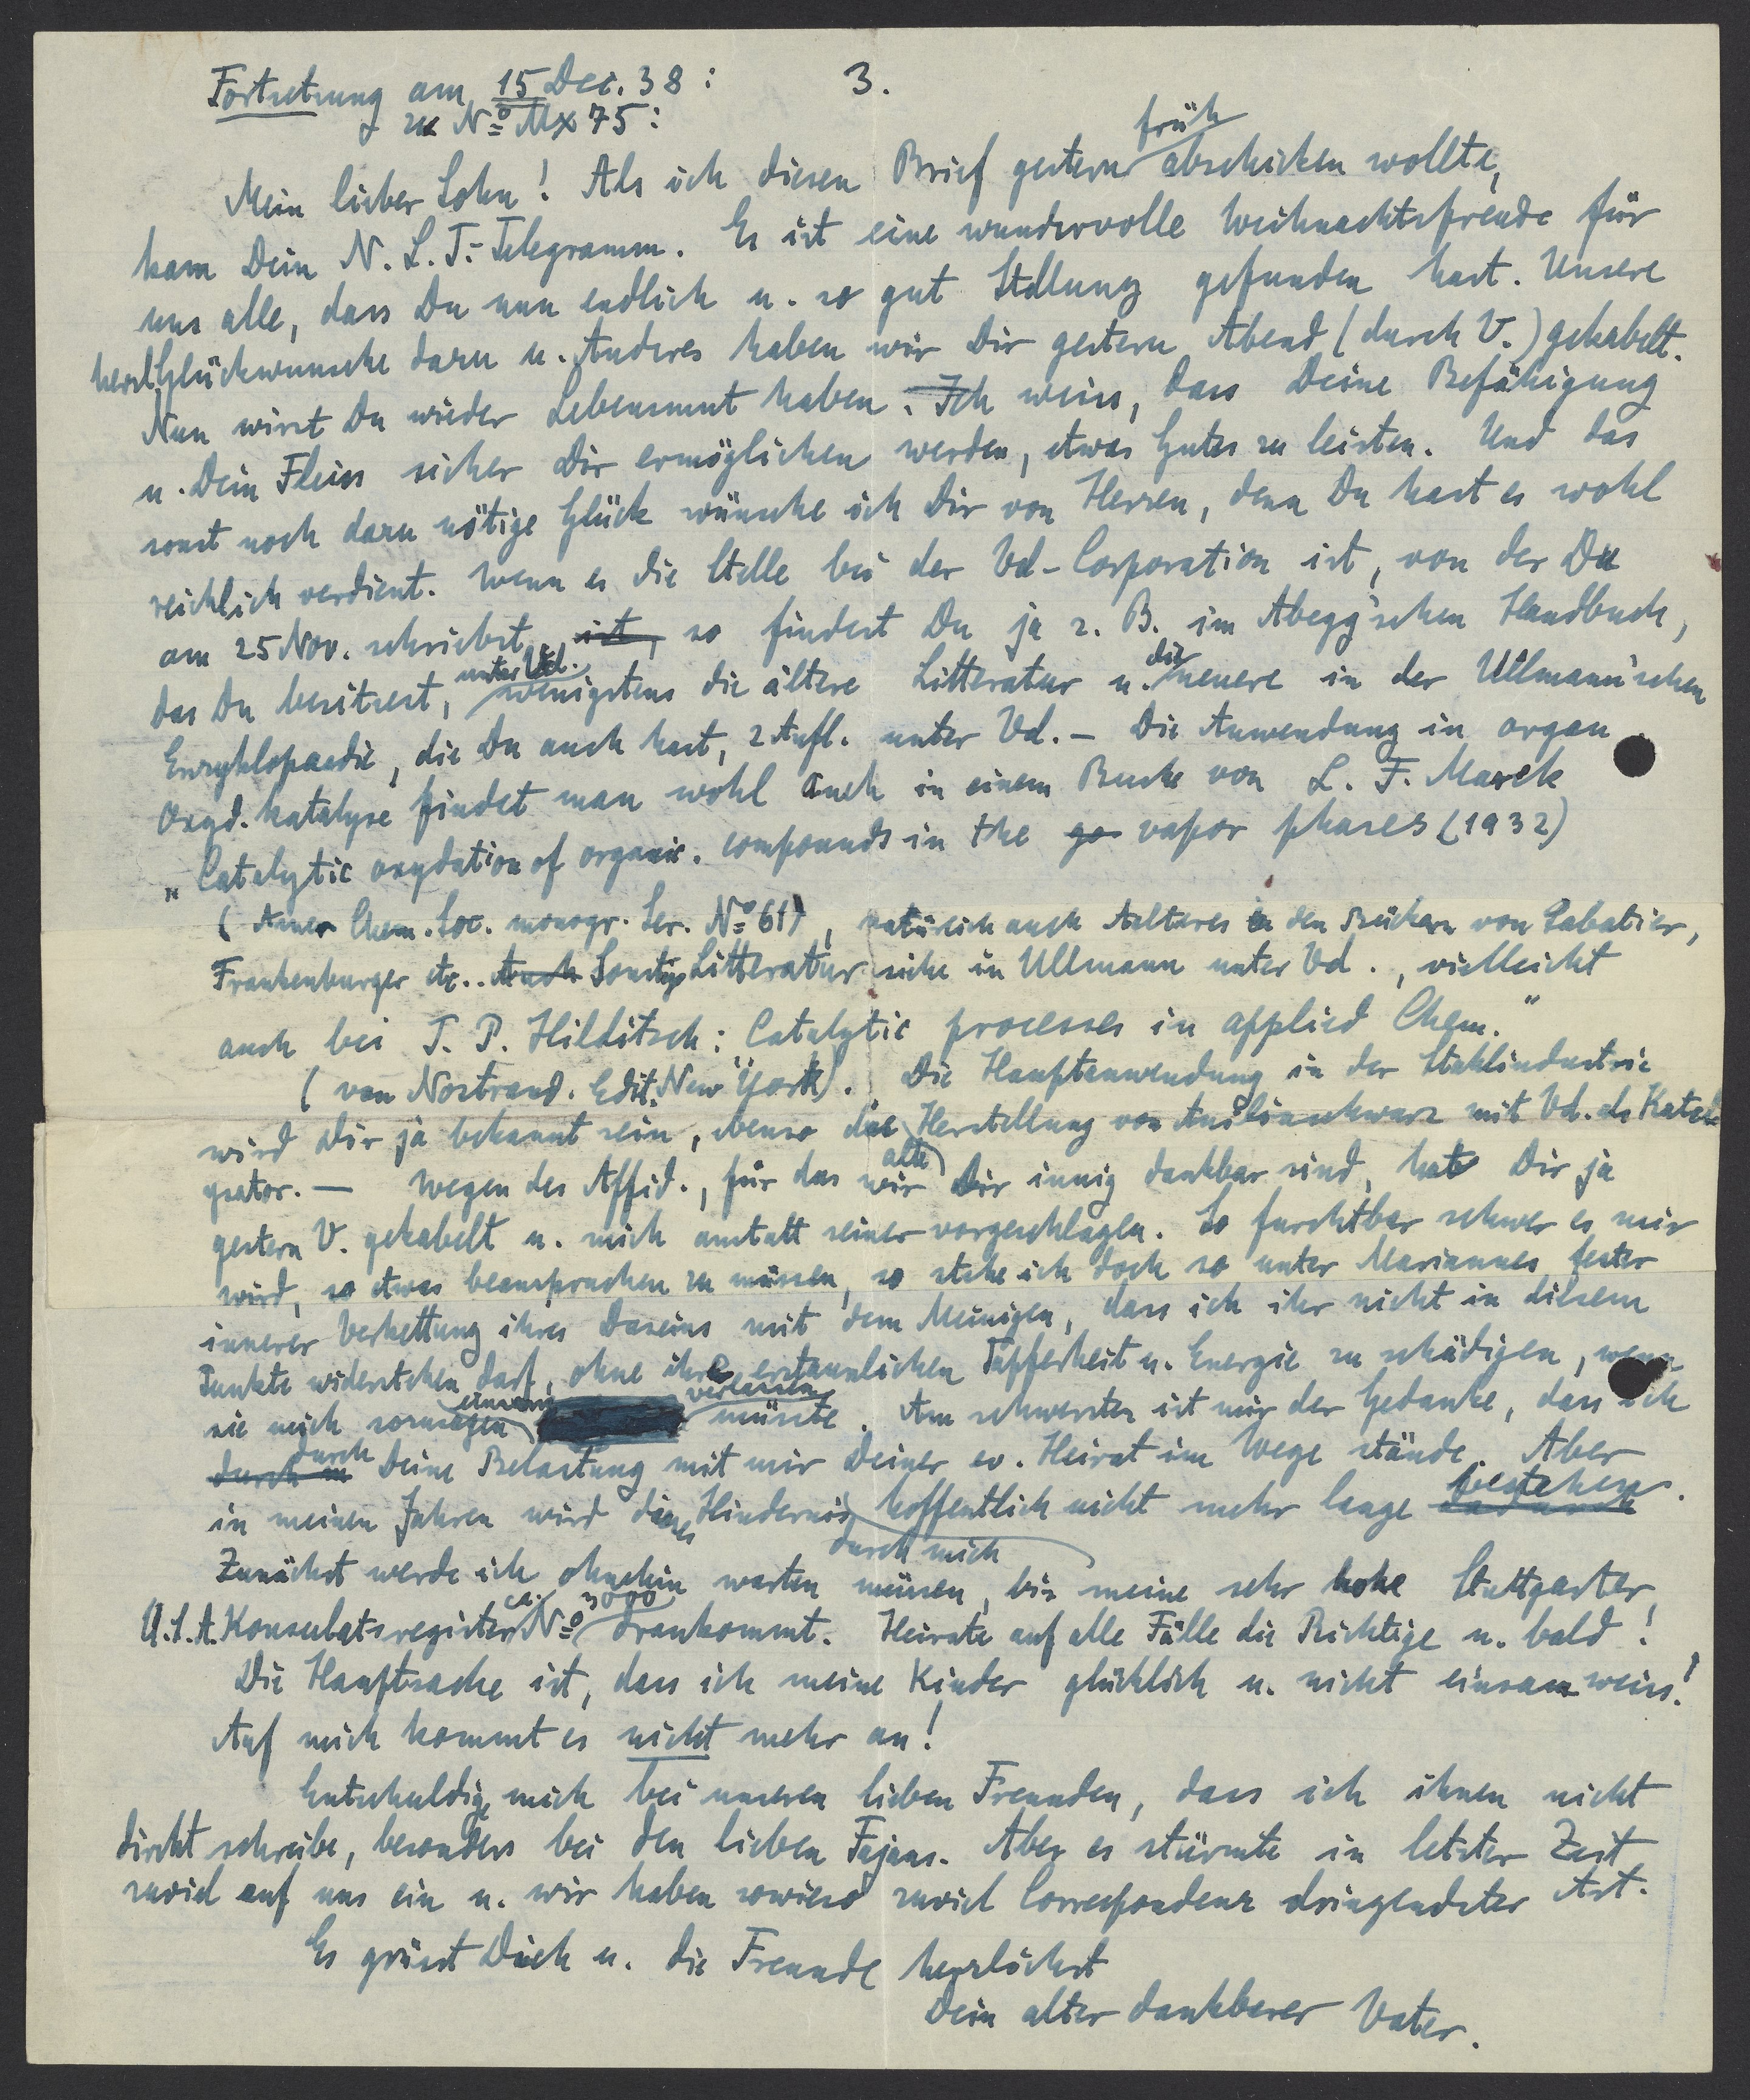 Fortsetzung am 15 Dec. 38: 3.
zu Nº Mx 75:
Mein lieber Sohn! Als ich diesen Brief gestern früh abschicken wollte,
kam Dein N. L. T.-Telegramm. Es ist eine wundervolle Weihnachtsfreude für
uns alle, dass Du nun endlich u. so gut Stellung gefunden hast. Unsere
herzl. Glückwünsche dazu u. Anderes haben wir Dir gestern Abend (durch V.) gekabelt.
Nun wirst Du wieder Lebensmut haben. Ich weiss, dass Deine Befähigung
u. Dein Fleiss sicher Dir ermöglichen werden, etwas Gutes zu leisten. Und das
sonst noch dazu nötige Glück wünsche ich Dir von Herzen, denn Du hast es wohl
reichlich verdient. Wenn es die Stelle bei der Vd-Corporation ist, von der Du
am 25 Nov. schriebst, ist, so findest Du ja z. B. im Abegg'schen Handbuch,
das Du besitzest, unter Vd. wenigstens die ältere Litteratur u. die neuere in der Ullmann'schen
Enzyklopaedie, die Du auch hast, 2 Aufl. unter Vd. – Die Anwendung in organ
Oxyd. katalyse findet man wohl auch in einem Buche von L. F. Marek
„Catalytic oxydation of organic. compounds in the ga vapor phases (1932)
(Amer Chem. Soc. monogr. Ser. Nº 61), natürlich auch Aelteres in den Büchern von Sabatier,
Frankenburger etc.. Auch Sonstige Litteratur siehe in Ullmann unter Vd., vielleicht
auch bei T. P. Hilditsch: Catalytic processes in applied Chem."
(van Nostrand. Edit. New York). Die Hauptanwendung in der Stahlindustrie
wird Dir ja bekannt sein, ebenso die Herstellung von Anilinschwarz mit Vd. als Kataly
ysator. — Wegen des Affid., für das wir alle Dir innig dankbar sind, hat Dir ja
gestern V. gekabelt u. mich anstatt seiner vorgeschlagen. So furchtbar schwer es mir
wird, so etwas beanspruchen zu müssen, so stehe ich doch so unter Mariannes fester
innerer Verkettung ihres Daseins mit dem Meinigen, dass ich ihr nicht in diesem
Punkte widerstehen darf, ohne ihre erstaunlichen Tapferkeit u. Energie zu schädigen, wenn
sie mich sozusagen einsam verlassen müsste. Am schwersten ist mir der Gedanke, dass ich
durch Deine Belastung mit mir Deiner ev. Heirat im Wege stände. Aber
in meinen Jahren wird dieses Hindernis durch mich hoffentlich nicht mehr lange bestehen.
Zunächst werde ich ohnehin warten müssen, bis meine sehr hohe Stuttgarter
U.S.A. Konsulatsregister Nº ca. 3000 drankommt. Heirate auf alle Fälle die Richtige u. bald!
Die Hauptsache ist, dass ich meine Kinder glücklich u. nicht einsam weiss!
Auf mich kommt es nicht mehr an!
Entschuldige mich bei unseren lieben Freunden, dass ich ihnen nicht
direkt schreibe, besonders bei den lieben Fajans. Aber es stürmte in letzter Zeit
zuviel auf uns ein u. wir haben sowieso zuviel Correspondenz dringendster Art.
Es grüsst Dich u. die Freunde herzlichst
Dein alter dankbarer Vater.